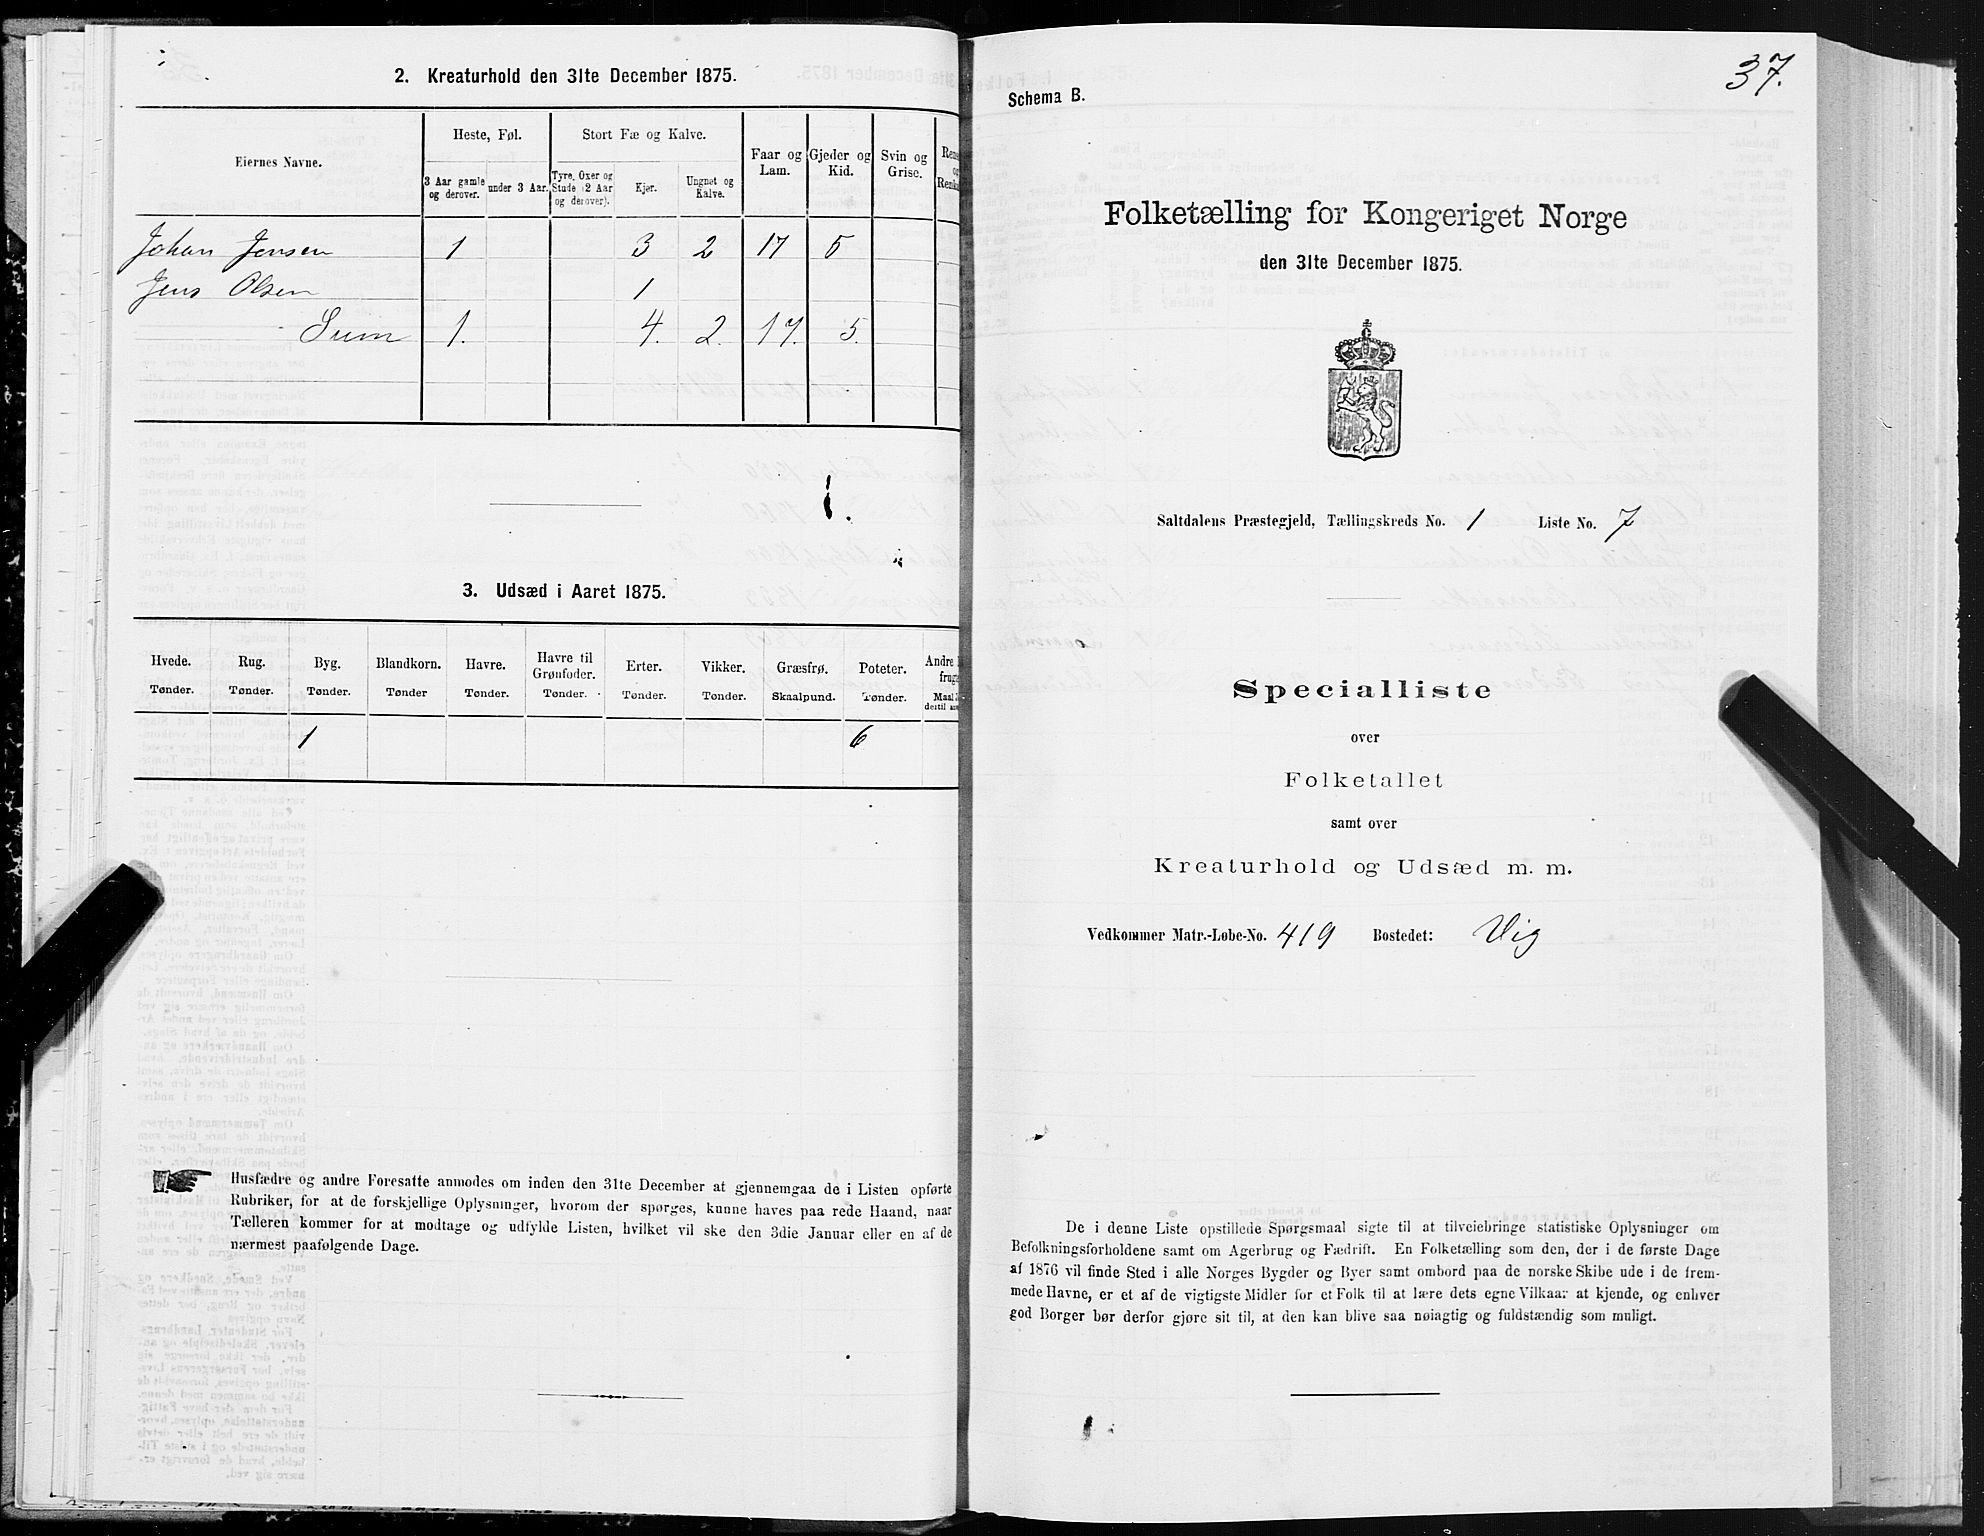 2. Kreaturhold den 31te December 1875.
Eiernes Navne.
Heste, Føl.
Stort Fæ og Kalve.
Faar og Lam.
Gjeder og Kid.
Svin og Grise.
3 Aar gamle og derover.
under 3 Aar.
Tyre, Oxer og Stude (2 Aar og derover).
Kjør.
Ungnet og Kalve.
Johan Jensen 1 3 2 17 5
Jens Olsen 1
Sum 1. 4. 2. 17. 5.
3. Udsæd i Aaret 1875.
Hvede. Rug. Byg. Blandkorn. Havre. Havre til Grønfoder. Erter. Vikker. Græsfrø. Poteter.
Tønder. Tønder. Tønder. Tønder Tønder. Tønder. Tønder. Tønder. Skaalpund. Tønder.
1 6
Husfædre og andre Foresatte anmodes om inden den 31te December at gjennemgaa de i Listen opførte
Rubriker, for at de forskjellige Oplysninger, hvorom der spørges, kunne haves paa rede Haand, naar
Tælleren kommer for at modtage og udfylde Listen, hvilket vil ske den 3die Januar eller en af de
nærmest paafølgende Dage.
37.
Schema B.
Folketælling for Kongeriget Norge
den 31te December 1875.
Saltdalens Præstegjeld, Tællingskreds No. 1 Liste No. 7
Specialliste
over
Folketallet
samt over
Kreaturhold og Udsæd m. m.
Vedkommer Matr.-Løbe-No. 419 Bostedet: Vig
De i denne Liste opstillede Spørgsmaal sigte til at tilveiebringe statistiske Oplysninger om
Befolkningsforholdene samt om Agerbrug og Fædrift. En Folketælling som den, der i de første Dage
af 1876 vil finde Sted i alle Norges Bygder og Byer samt ombord paa de norske Skibe ude i de frem-
mede Havne, er et af de vigtigste Midler for et Folk til at lære dets egne Vilkaar at kjende, og enhver
god Borger bør derfor gjøre sit til, at den kan blive saa nøiagtig og fuldstændig som muligt.